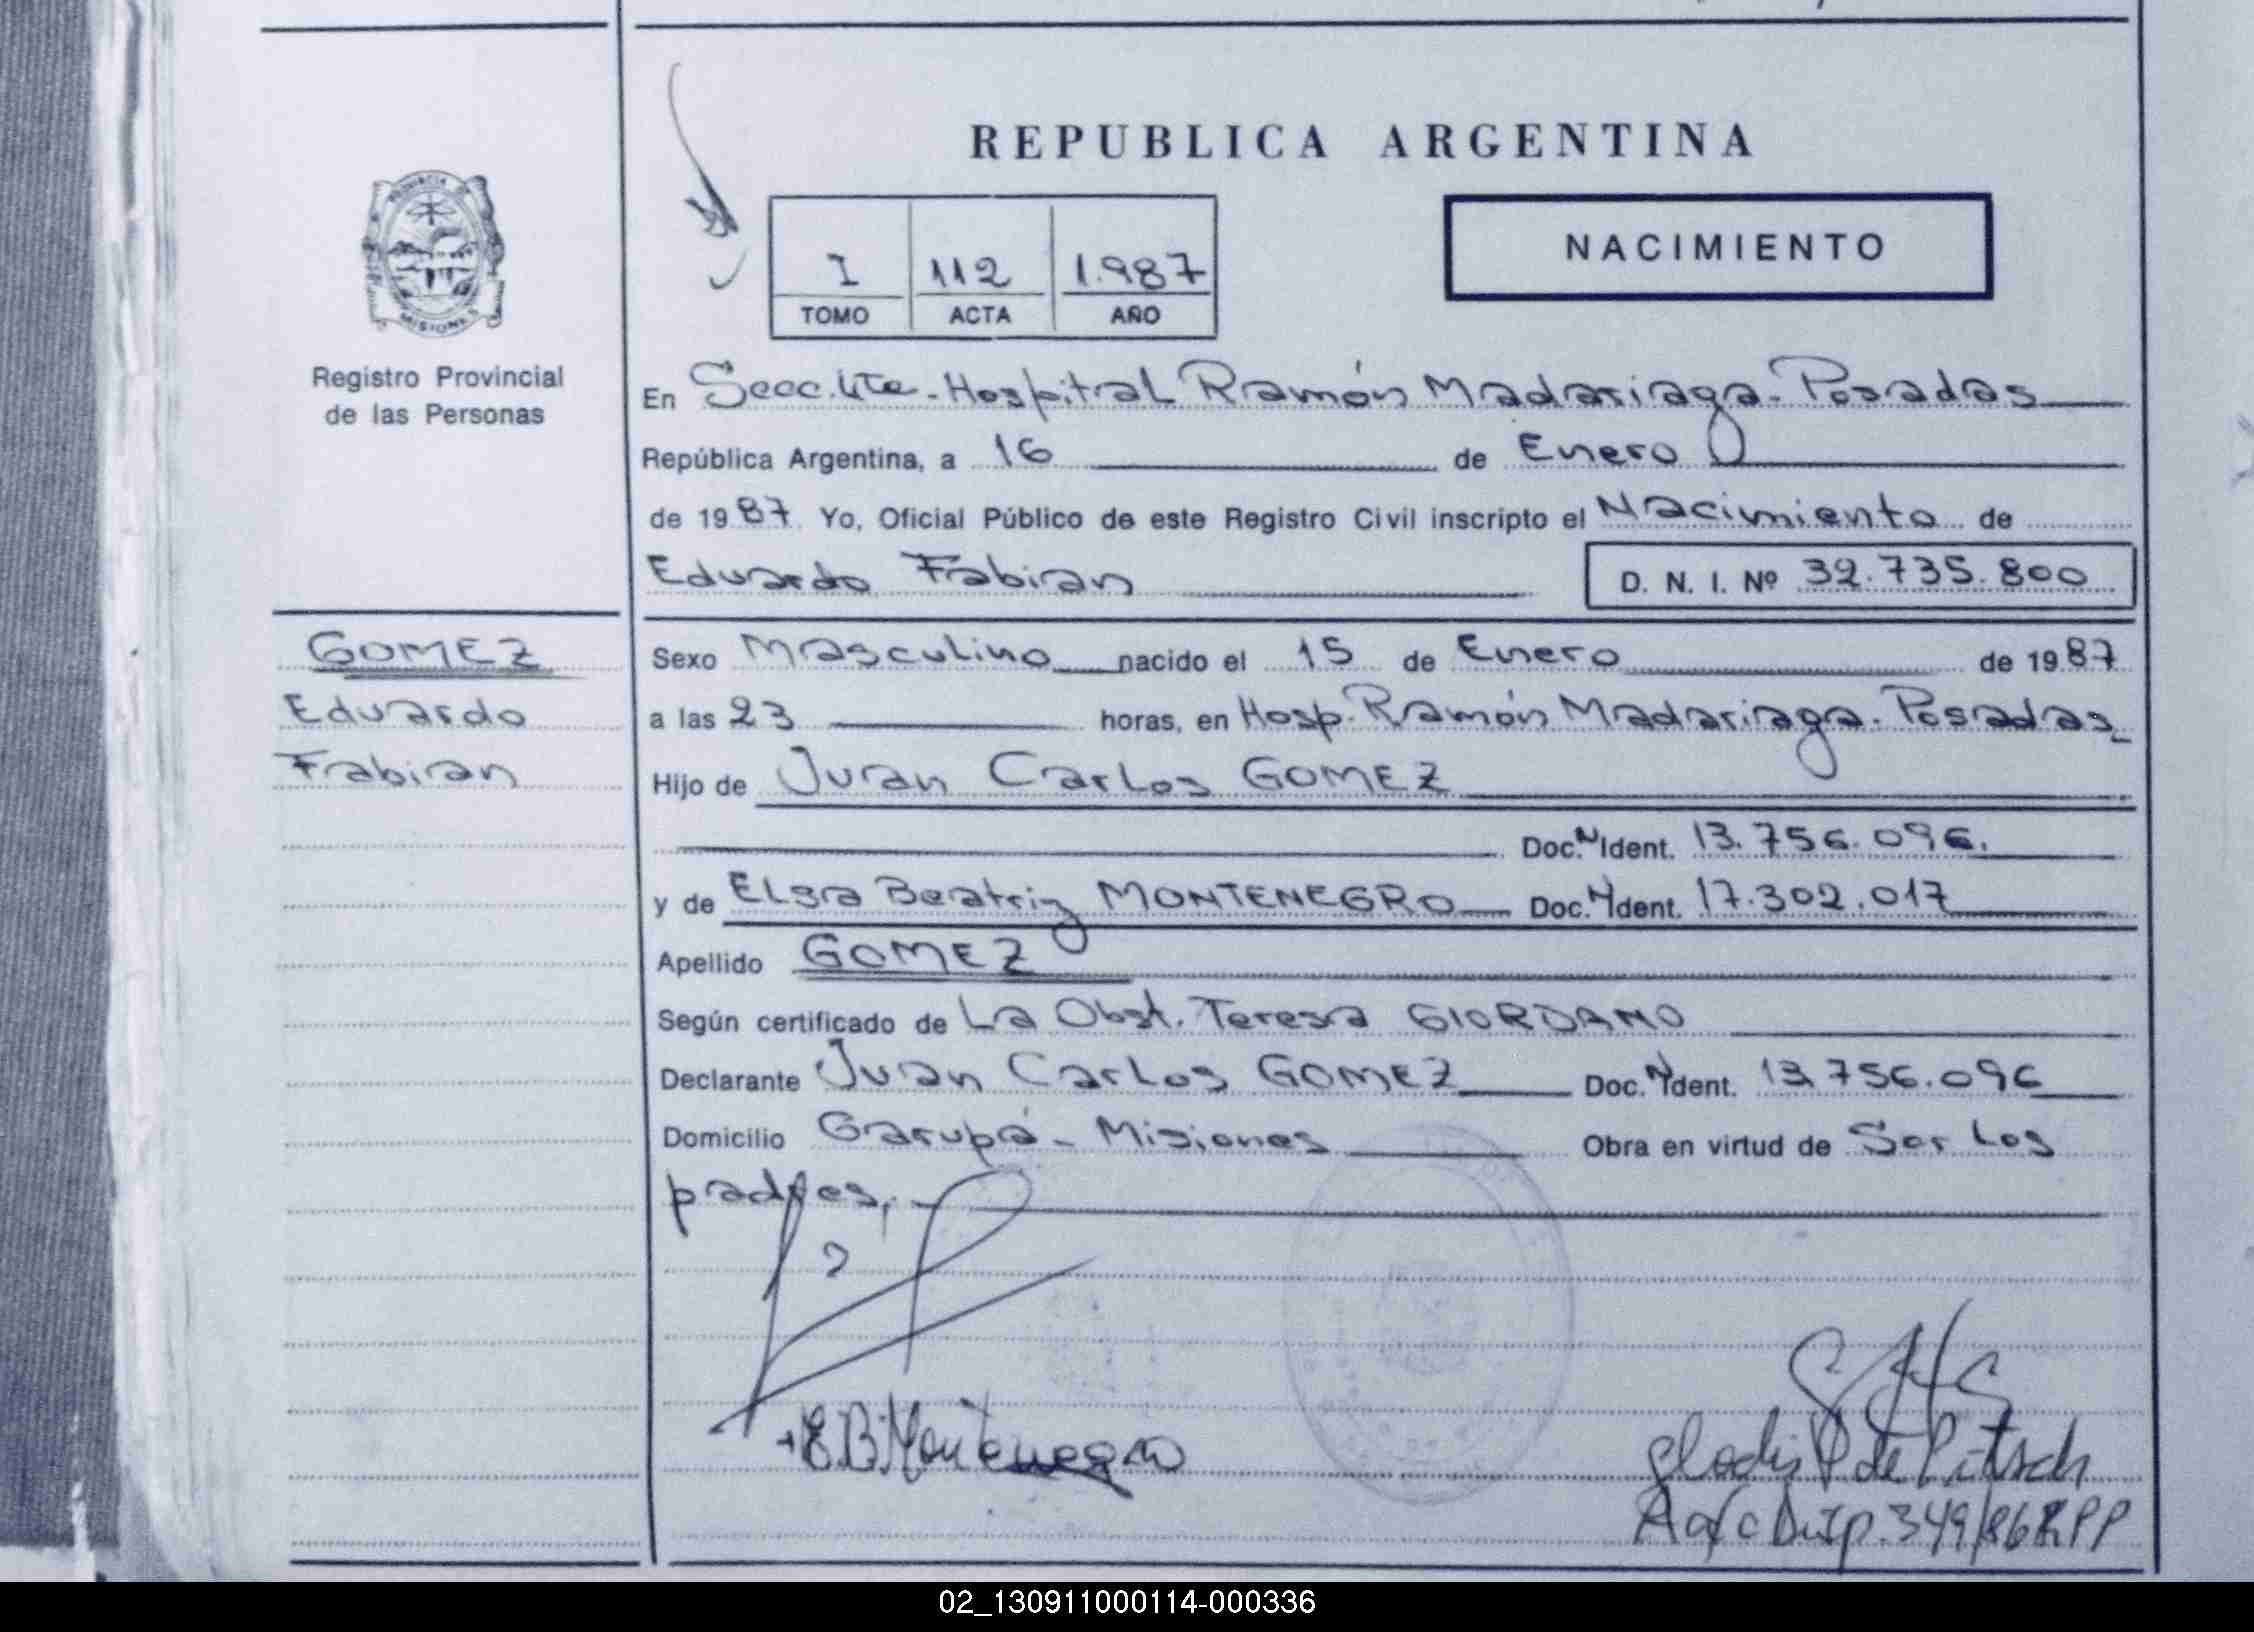 REPUBLICA ARGENTINA
PROVINCIA DE
MISIONES
Registro Provincial
de las Personas
I 112 1.987
TOMO ACTA AÑO
NACIMIENTO
En Secc. 4ta - Hospital Ramón Madariaga - Posadas
República Argentina, a 16 de Enero
de 1987. Yo, Oficial Público de este Registro Civil inscripto el Nacimiento de
Eduardo Fabian
D. N. I. Nº 32.735.800
GOMEZ
Eduardo
Fabian
Sexo Masculino nacido el 15 de Enero de 1987
a las 23 horas, en Hosp. Ramón Madariaga - Posadas
Hijo de Juan Carlos GOMEZ
Doc. N Ident. 13.756.096.
y de Elsa Beatriz MONTENEGRO Doc. N Ident. 17.302.017
Apellido GOMEZ
Según certificado de La Obst. Teresa GIORDANO
Declarante Juan Carlos GOMEZ Doc. N Ident. 13.756.096
Domicilio Garupá - Misiones Obra en virtud de Ser los
padres,
E.B. Montenegro
de
Disp. 349/86 RPP
02_130911000114-000336